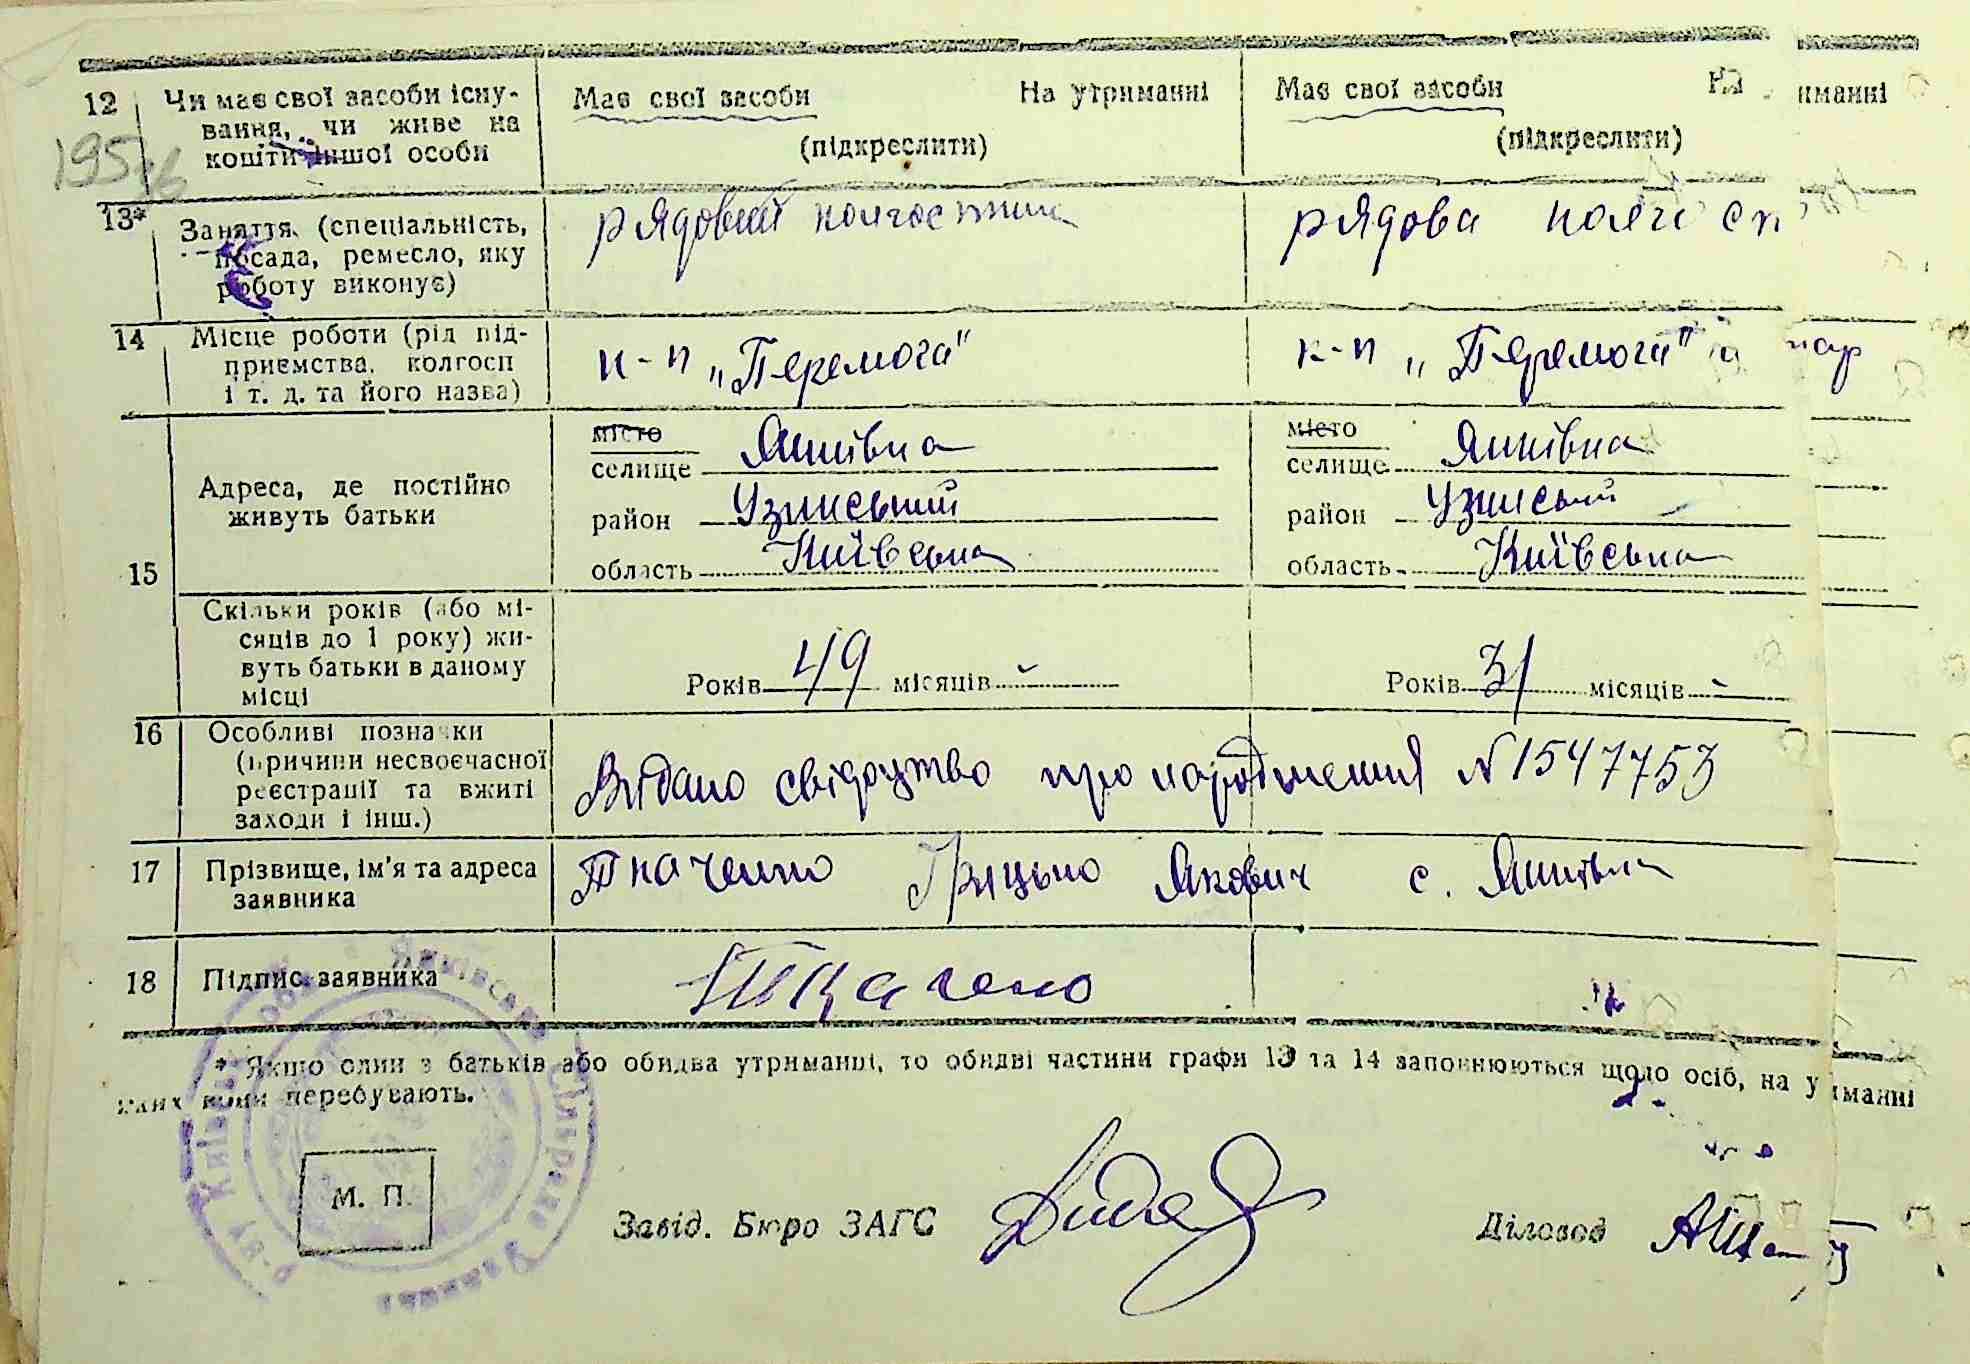 12 Чи має свої засоби існу- Має свої засоби На утриманні Має свої засоби На иманні
вання, чи живе на (підкреслити) (підкреслити)
кошти іншої особи
195
13* Заняття (спеціальність, рядовий колгоспник рядова колгосп
посада, ремесло, яку
роботу виконує)
14 Місце роботи (рід під- к-п „Перемога" к-п „Перемога"
приємства, колгосп
і т. д. та його назва)
15 Адреса, де постійно місто місто
живуть батьки селище Яншівка селище Яншівка
район Узинський район Узинський
область Київська область Київська
Скільки років (або мі-
сяців до 1 року) жи-
вуть батьки в даному Років 49 місяців - Років 31 місяців -
місці
16 Особливі позначки
(причини несвоєчасної Видано свідоцтво про народження N 1547753
реєстрації та вжиті
заходи і інш.)
17 Прізвище, ім'я та адреса Ткаченко Грицько Якович с.
заявника
18 Підпис заявника Ткаченко
* Якщо один з батьків або обидва утриманці, то обидві частини графи 13 та 14 заповнюються щодо осіб, на у иманні
яких вони перебувають.
М. П.
Завід. Бюро ЗАГС Діловод